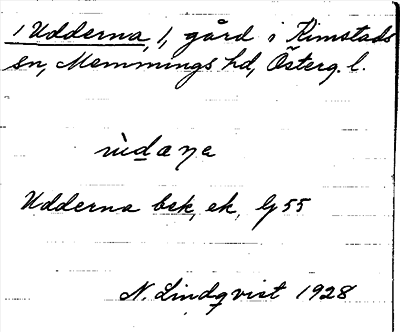 1 Udderna, 1, gård i Kimstads
sn, Memmings hd, Österg. l.
ùdaṇe
Udderna bsk, ek, Gj 55
N. Lindqvist 1928